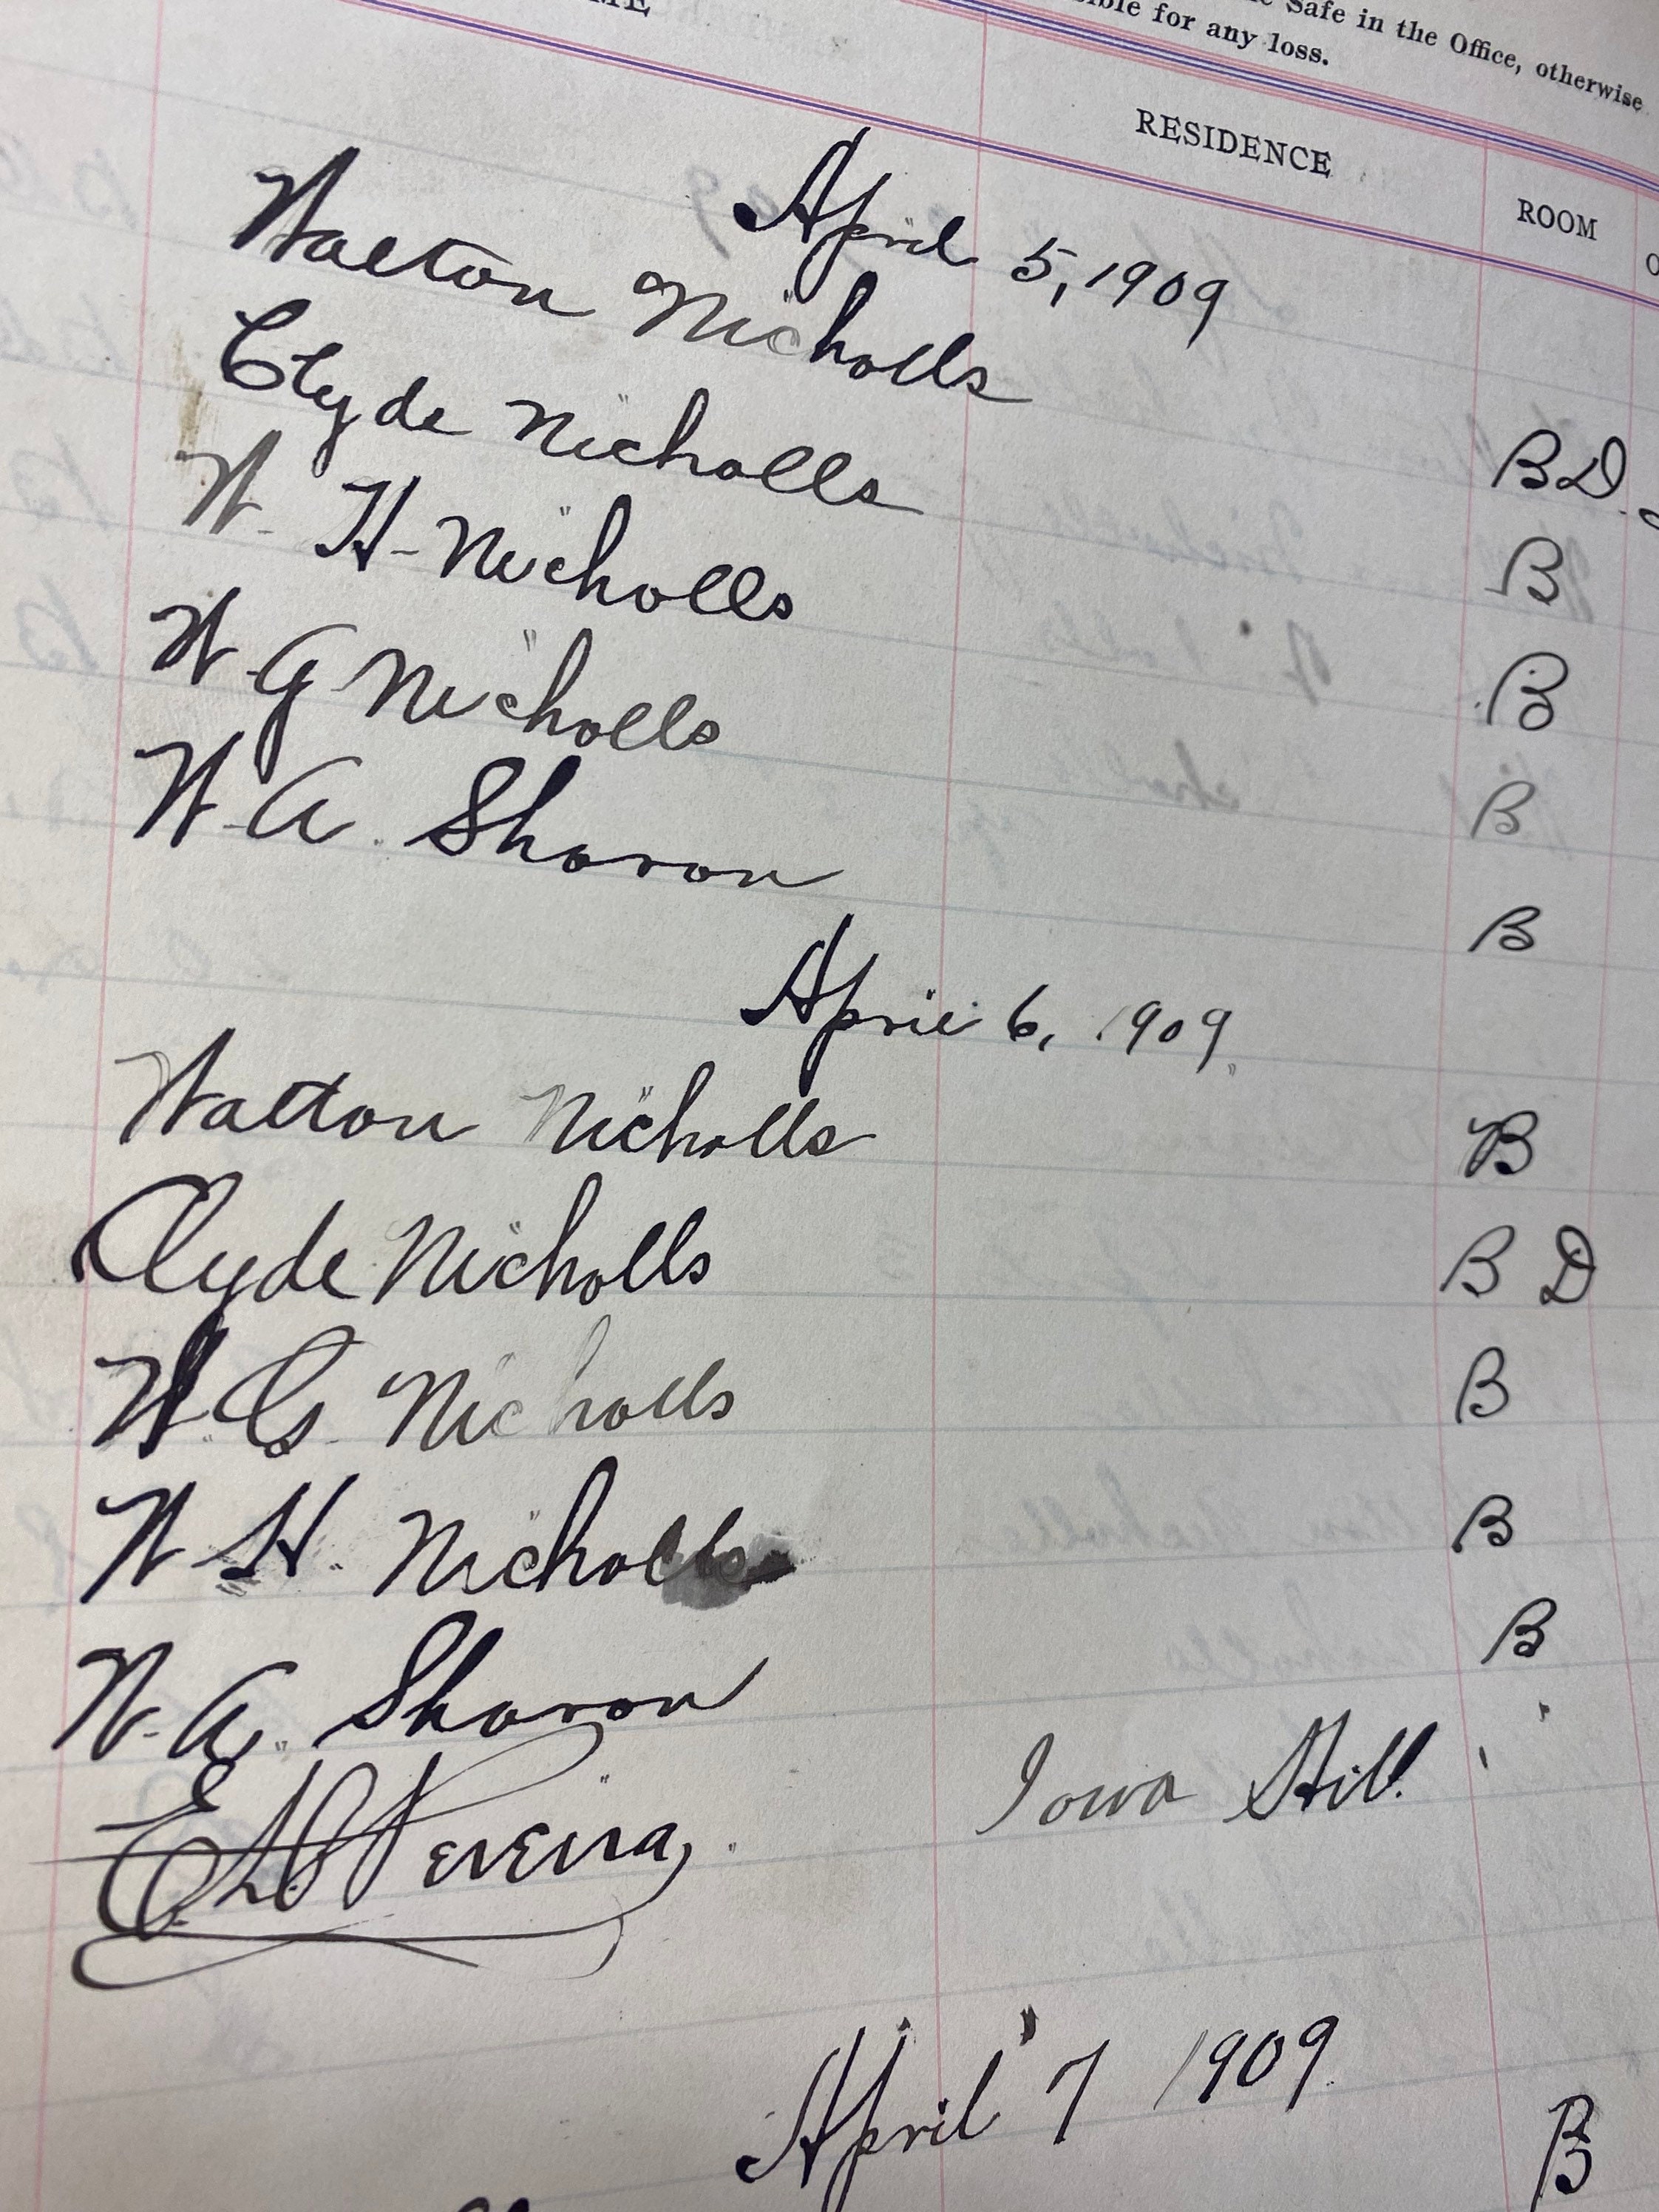 Safe in the Office, otherwise
for any loss.
RESIDENCE
ROOM
April 5, 1909
Walton Nicholls
Clyde Nicholls B D.
W. H. Nicholls B
W. G. Nicholls B
W. A. Sharon B
B
April 6, 1909.
Walton Nicholls B
Clyde Nicholls B D
W. G. Nicholls B
W. H. Nicholls B
W. A. Sharon B
Pereira, Iowa Hill.
April 7 1909
B